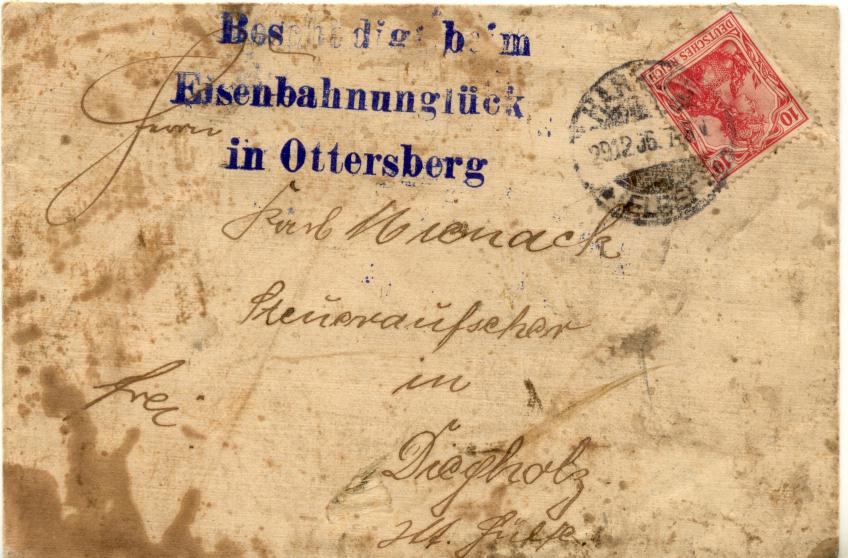 Beschädigt beim
Eisenbahnunglück
in Ottersberg
DEUTSCHES REICH
10 10
29.12.06. 7-8 V
Herrn
Karl
Steueraufseher
in
frei
Diepholz